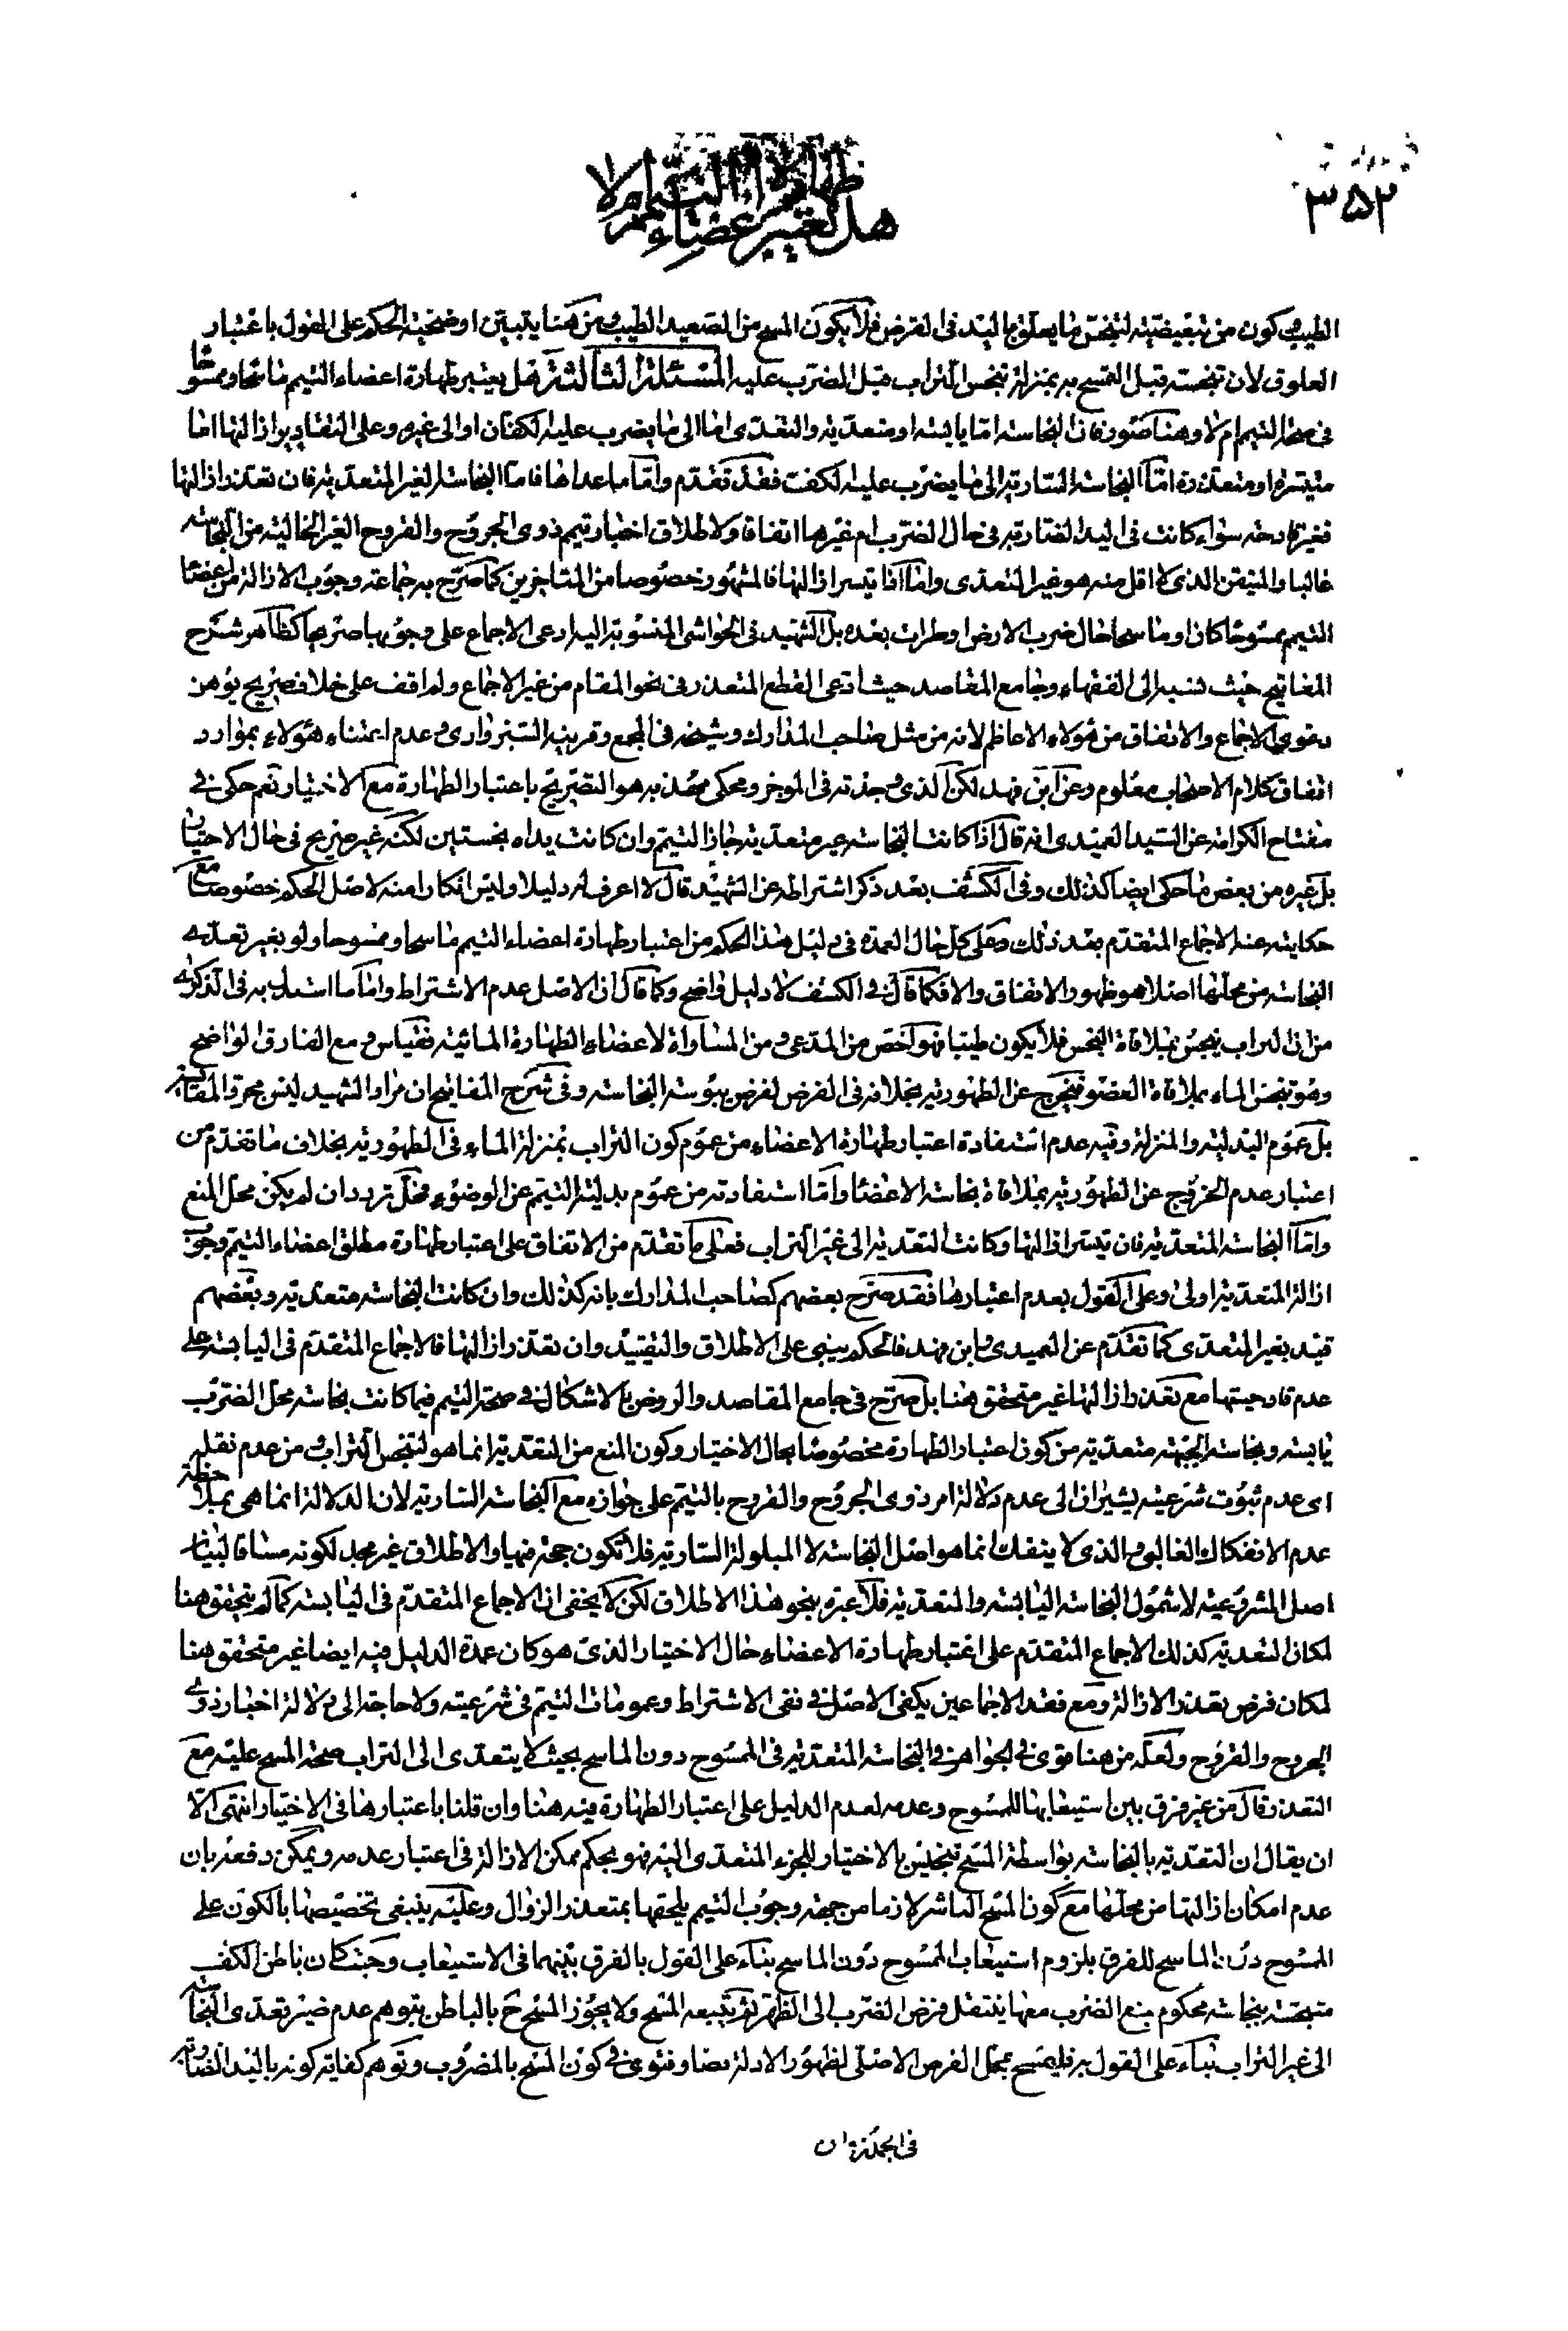 ٣٥٢
هل يعتبر طهارة اعضاء التيمم ام لا
الطيب كون من تبعيضيّة لتنجّس ما يعلق باليد فى الفرض فلا يكون المسح من الصعيد الطيب من هنا يتبيّن اوضحيّة الحكم على القول باعتبار
العلوق لان تنجسه قبل التمسح به بمنزلة تنجس التراب قبل الضرب عليه المسئلة الثالثة هل يعتبر طهارة اعضاء التيمم ماسحا وممسوحا
فى صحة التيمم ام لا وهنا صور فان النجاسة امّا يابسة او متعدّية والتعدّى امّا الى ما يضرب عليه الكفان او الى غيره وعلى التقادير ازالتها امّا
متيسرة او متعذرة امّا النجاسة السارية الى ما يضرب عليه الكف فقد تقدّم وامّا ما عداها فامّا النجاسة الغير المتعدّية فان تعذر ازالتها
فغير قادحة سواء كانت فى اليد الضاربة فى حال الضرب ام غيرها اتفاقا ولاطلاق اخبار تيمم ذوى الجروح والقروح الغير الخالية من النجاسة
غالبا والمتيقن الذى لا اقل منه هو غير المتعدّى وامّا اذا تيسر ازالتها فالمشهور خصوصا من المتاخرين كما صرّح به جماعة وجوب الازالة من اعضاء
التيمم ممسوحا كان او ماسحا حال ضرب الارض او طرات بعده بل الشهيد فى الحواشى المنسوبة اليه ادعى الاجماع على وجوبها صريحا كظاهر شرح
المفاتيح حيث نسبه الى الفقهاء وجامع المقاصد حيث ادعى القطع المتعذر فى نحو المقام من غير الاجماع ولم اقف على خلاف صريح يوهن
دعوى الاجماع والاتفاق من هؤلاء الاعاظم لانه من مثل صاحب المدارك وشيخه فى المجمع وقرينه السبزوارى وعدم اعتناء هؤلاء بموارد
اتفاق كلام الاصحاب معلوم وعن ابن فهد لكن الذى وجدته فى الموجز ومحكى مهذبه هو التصريح باعتبار الطهارة مع الاختيار نعم حكى فى
مفتاح الكرامة عن السيد العميدى انه قال اذا كانت النجاسة غير متعدية جاز التيمم وان كانت يداه نجستين لكنه غير صريح فى حال الاختيار
بل غيره من بعض ما حكى ايضا كذلك وفى الكشف بعد ذكر اشتراطه عن الشهيد قال لا اعرف له دليلا وليس انكارا منه لاصل الحكم خصوصا مع
حكايته عنه الاجماع المتقدّم بعد ذلك وعلى كل حال العمدة فى دليل هذا الحكم من اعتبار طهارة اعضاء التيمم ماسحا وممسوحا ولو بغير تعدّى
النجاسة من محلّها اصلا هو ظهور الاتفاق والا فكما قال فى الكشف لا دليل واضح وكما قال ان الاصل عدم الاشتراط وامّا ما استدل به فى الذكرى
من ان التراب ينجس بملاقاة النجس فلا يكون طيبا فهو اخص من المدعى ومن المساواة لاعضاء الطهارة المائية فقياس ومع الفارق لواضح
وهو تنجس الماء بملاقاة العضو فيخرج عن الطهورية بخلافه فى الفرض لفرض يبوسة النجاسة وفى شرح المفاتيح ان مراد الشهيد ليس مجرد المقايسة
بل عموم البدلية والمنزلة وفيه عدم استفادة اعتبار طهارة الاعضاء من عموم كون التراب بمنزلة الماء فى الطهورية بخلاف ما تقدّم من
اعتبار عدم الخروج عن الطهورية بملاقاة نجاسة الاعضاء وامّا استفادته من عموم بدلية التيمم عن الوضوء فمحل تردد ان لم يكن محل المنع
وامّا النجاسة المتعدّية فان تيسر ازالتها وكانت التعدية الى غير التراب فعلى ما تقدّم من الاتفاق على اعتبار طهارة مطلق اعضاء التيمم وجوب
ازالة المتعدّية اولى وعلى القول بعدم اعتبارها فقد صرّح بعضهم كصاحب المدارك بانه كذلك وان كانت النجاسة متعدّية وبعضهم
قيّد بغير المتعدّى كما تقدّم عن العميدى وابن فهد فالحكم يبنى على الاطلاق والتقييد وان تعذر ازالتها فالاجماع المتقدّم فى اليابسة على
عدم قادحيتها مع تعذر ازالتها غير متحقق هنا بل صرّح فى جامع المقاصد والروض بالاشكال فى صحة التيمم فيما كانت نجاسة محل الضرب
يابسة ونجاسة الجبهة متعدّية من كون اعتبار الطهارة مخصوصا بحال الاختيار وكون المنع من المتعدّية انما هو لتنجس التراب ومن عدم نقله
اى عدم ثبوت شرعيته يشير ان الى عدم دلالة امر ذوى الجروح والقروح بالتيمم على جوازه مع النجاسة السارية لان الدلالة انما هى بملاحظة
عدم الانفكاك الغالبى والذى لا ينفك انما هو اصل النجاسة لا المبلولة السارية فلا تكون حجة فيها والاطلاق غير مجد لكونه مساقا لبيان
اصل المشروعية لا شمول النجاسة اليابسة والمتعدية فلا عبرة بنحو هذا الاطلاق لكن لا يخفى ان الاجماع المتقدّم فى اليابسة كما لم يتحقق هنا
لمكان التعدية كذلك الاجماع المتقدم على اعتبار طهارة الاعضاء حال الاختيار الذى هو كان عمدة الدليل فيه ايضا غير متحقق هنا
لمكان فرض تعذر الازالة ومع فقد الاجماعين يكفى الاصل فى نفى الاشتراط وعمومات التيمم فى شرعيته ولا حاجة الى دلالة اخبار ذوى
الجروح والقروح ولعله من هنا قوى فى الجواهر فى النجاسة المتعدّية فى الممسوح دون الماسح بحيث لا يتعدّى الى التراب صحة المسح عليه مع
التعذر قال من غير فرق بين استيعابها للممسوح وعدمه لعدم الدليل على اعتبار الطهارة فيه هنا وان قلنا باعتبارها فى الاختيار انتهى الّا
ان يقال ان التعدّية بالنجاسة بواسطة المسح تنجيس بالاختيار للجزء المتعدّى اليه فهو بحكم ممكن الازالة فى اعتبار عدمه ويمكن دفعه بان
عدم امكان ازالتها من محلّها مع كون المسح الناشر لازما من جهة وجوب التيمم يلحقها بمتعذر الزوال وعليه ينبغى تخصيصها بالكون على
الممسوح دون الماسح للفرق بلزوم استيعاب الممسوح دون الماسح بناء على القول بالفرق بينهما فى الاستيعاب وحيث كان باطن الكف
متنجسة بنجاسة محكوم بمنع الضرب معها ينتقل فرض الضرب الى الظهر ثم يتبعه المسح ولا يجوز المسح ح بالباطن بتوهم عدم ضير تعدّى النجاسة
الى غير التراب بناء على القول به فليمسح بمحل الفرض الاصلى لظهور الادلة نصا وفتوى فى كون المسح بالمضروب وتوهم كفاية كونه باليد الضاربة
فى الجملة